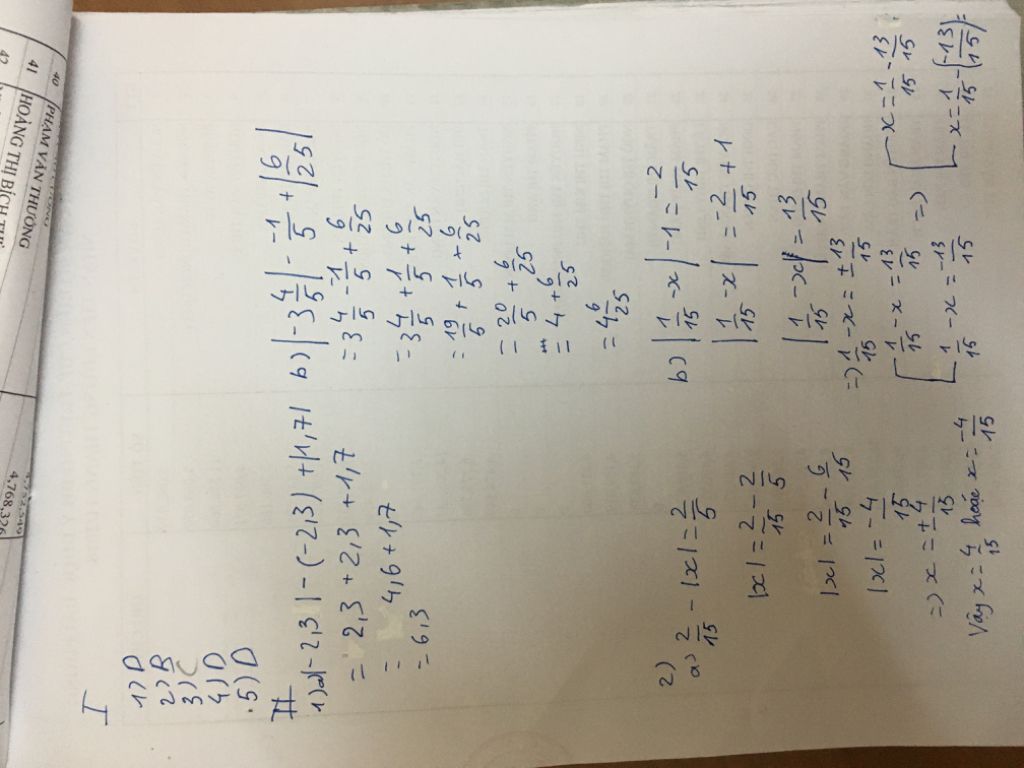 I
1) D
2) B
3) C
4) D
5) D
II
1) a) |-2,3| - (-2,3) + |1,7|
= 2,3 + 2,3 + 1,7
= 4,6 + 1,7
= 6,3
b) |-3 4/5| - -1/5 + |6/25|
= 3 4/5 - -1/5 + 6/25
= 3 4/5 + 1/5 + 6/25
= 19/5 + 1/5 + 6/25
= 20/5 + 6/25
= 4 + 6/25
= 4 6/25
2)
a) 2/15 - |x| = 2/5
|x| = 2/15 - 2/5
|x| = 2/15 - 6/15
|x| = -4/15
=> x = ± 4/15
Vậy x = 4/15 hoặc x = -4/15
b) |1/15 - x| - 1 = -2/15
|1/15 - x| = -2/15 + 1
|1/15 - x| = 13/15
=> 1/15 - x = ± 13/15
[ 1/15 - x = 13/15
1/15 - x = -13/15
=> [ x = 1/15 - 13/15
x = 1/15 - (-13/15) =
40
PHẠM VĂN THƯƠNG
41
HOÀNG THỊ BÍCH
42
4.768.326